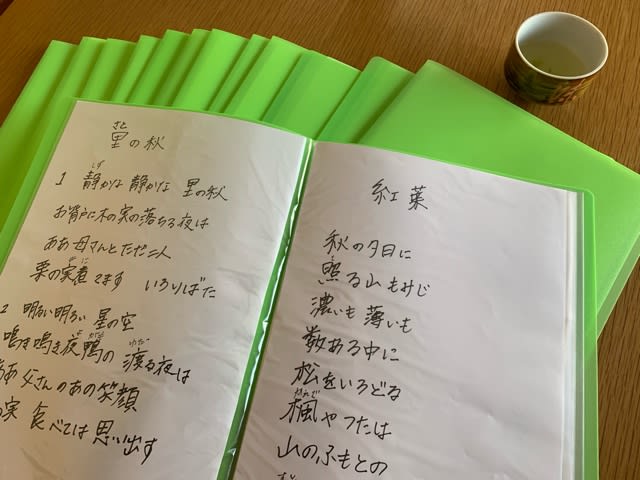 さと
里の秋
しず
1 静かな 静かな 里の秋
お背戸に木の実の落ちる夜は
ああ母さんとただ二人
に
栗の実煮てます いろりばた
2 明るい明るい 星の空
鳴き鳴き夜鴨の 渡る夜は
ああ父さんのあの笑顔
の実 食べては 思い出す
紅葉
秋の夕日に
照る山もみじ
濃いも薄いも
数ある中に
松をいろどる
かえで
楓やつたは
山のふもとの